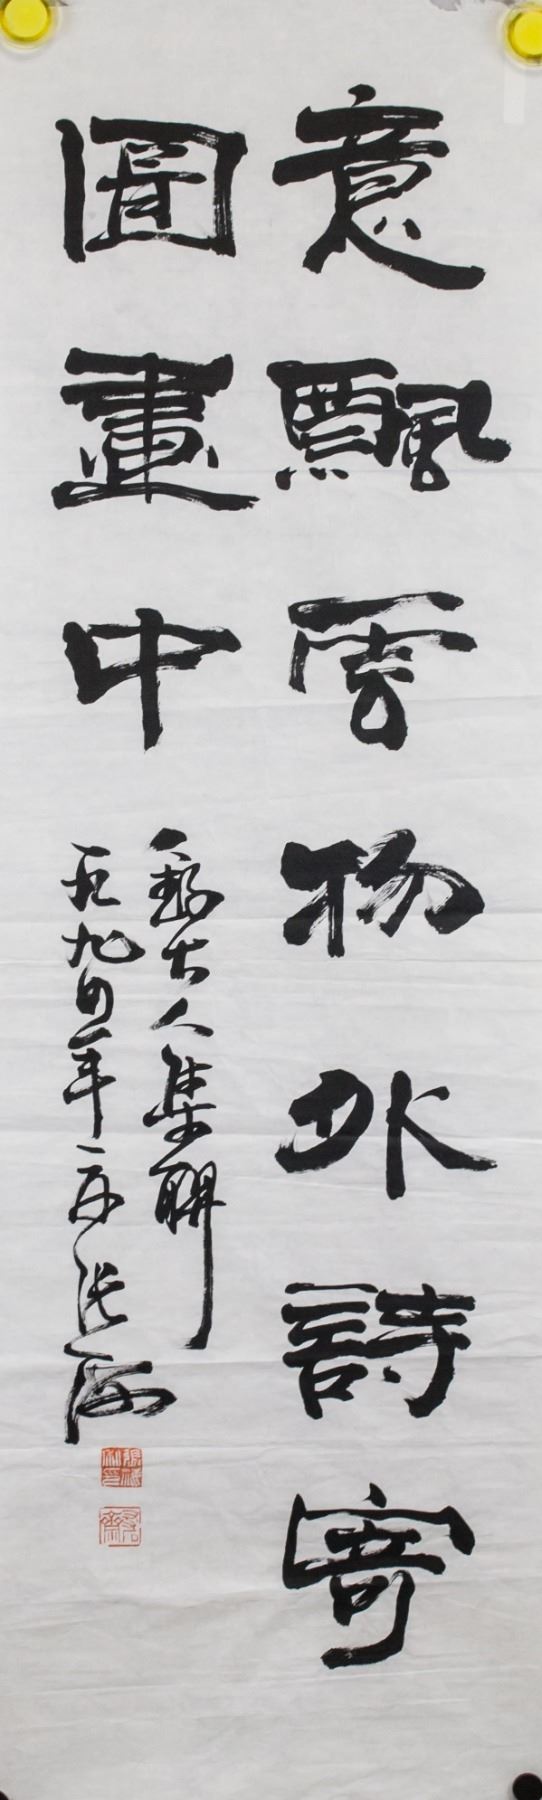 意飄雲物外詩寄
圖畫中
大人集聯
一九九四年 張海